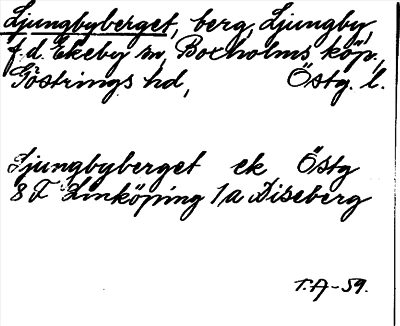 Ljungbyberget, berg, Ljungby,
f.d. Ekeby sn, Boxholms köp.,
Göstrings hd, Östg. l.
Ljungbyberget ek Östg
8 F Linköping 1a Diseberg
T.A-59.